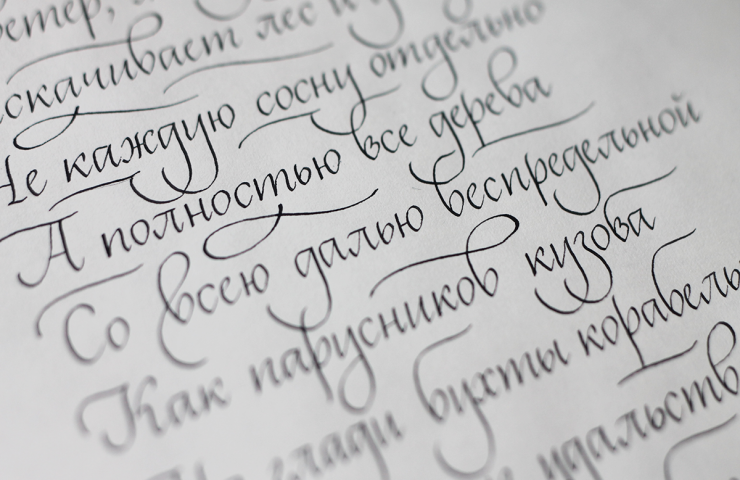 скачивает лес и
Не каждую сосну отдельно
А полностью все дерева
Со всею далью беспредельной
Как парусников кузова
глади бухты корабельн
удальств